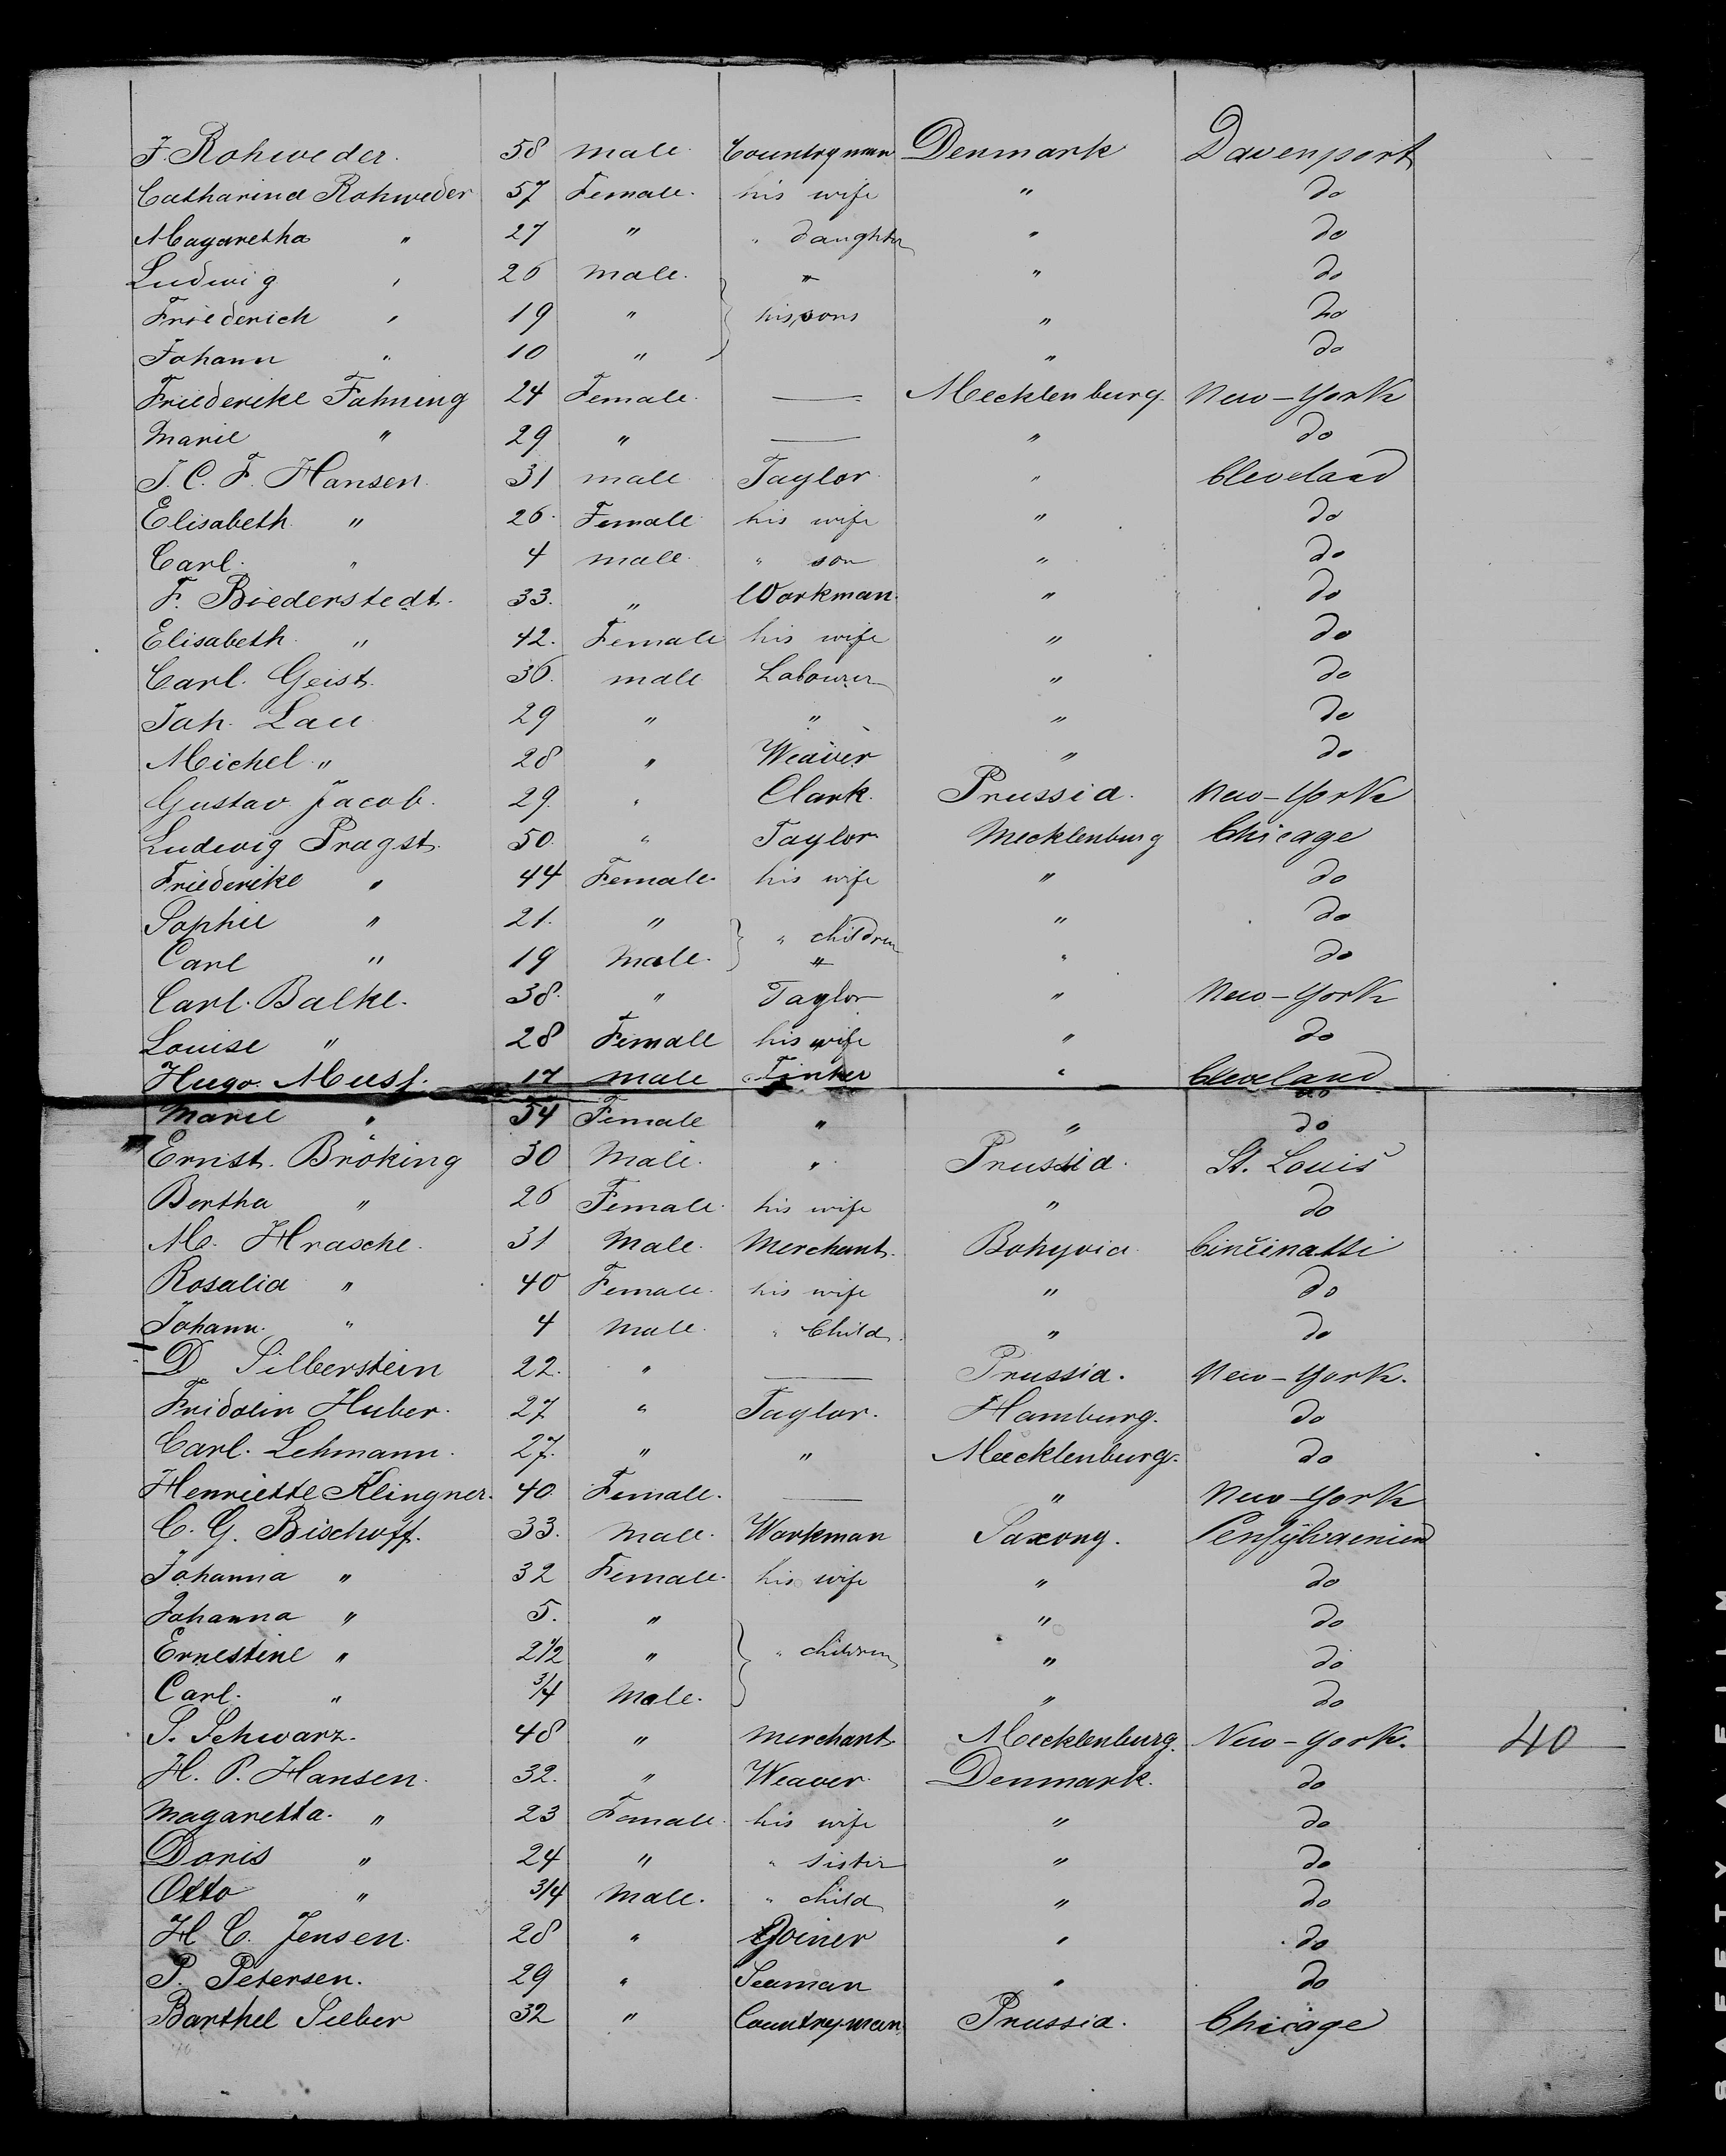 J. Rohweder. 58 male Countryman Denmark Davenport
Catharina Rohweder 57 Female. his wife " do
Magaretha " 27 " " daughter " do
Ludwig " 26 male. " " do
Friederich " 19 " his sons " do
Johann " 10 " " do
Friederike Fahning 24 Female. — Mecklenburg New-York
Marie " 29 " — " do
J. C. F. Hansen. 31 male Taylor " Cleveland
Elisabeth " 26. Female his wife " do
Carl. " 4 male " son " do
F. Biederstedt. 33. " Workman. " do
Elisabeth. " 42. Female his wife " do
Carl. Geist. 36. male Labourer " do
Joh. Lau 29 " " " do
Michel " 28 " Weaver " do
Gustav Jacob. 29. " Clark. Prussia. New-York
Ludwig Pragst. 50. " Taylor Mecklenburg Chicage
Friederike " 44 Female. his wife " do
Sophie " 21. " " children " do
Carl " 19 Male. " " do
Carl. Balke. 38. " Taylor " New-York
Louise " 28 Female his wife " do
Hugo. Muss. 17 male Tinker " Cleveland
Marie " 54 Female " " do
Ernst. Bröking 30 Male. " Prussia. St. Louis
Bertha " 26 Female. his wife " do
M. Hrasche. 31 Male. Merchant. Bohyvia Cincinatti
Rosalia " 40 Female. his wife " do
Johann. " 4 Male. " Child. " do
D Silberstein 22. " — Prussia. New-York.
Fridolin Huber. 27 " Taylor. Hamburg. do
Carl. Lehmann. 27. " " Mecklenburg. do
Henriette Klingner. 40. Female. — " New-York
C. G. Bischoff. 33. Male. Workman Saxony. Pensylvanien
Johanna " 32 Female. his wife " do
Johanna " 5. " " do
Ernestine " 2 1/2 " " children " do
Carl. " 3/4 Male. " do
S. Schwarz. 48 " Merchant Mecklenburg. New-York. 40
H. P. Hansen. 32. " Weaver Denmark. do
Magaretta. " 23 Female. his wife " do
Doris " 24 " " sister " do
Otto " 3/4 Male. " child " do
H C. Jensen. 28 " Joiner " do
P. Petersen. 29 " Seaman " do
Barthel Sieber 32 " Countryman Prussia. Chicage
SAFETY FILM